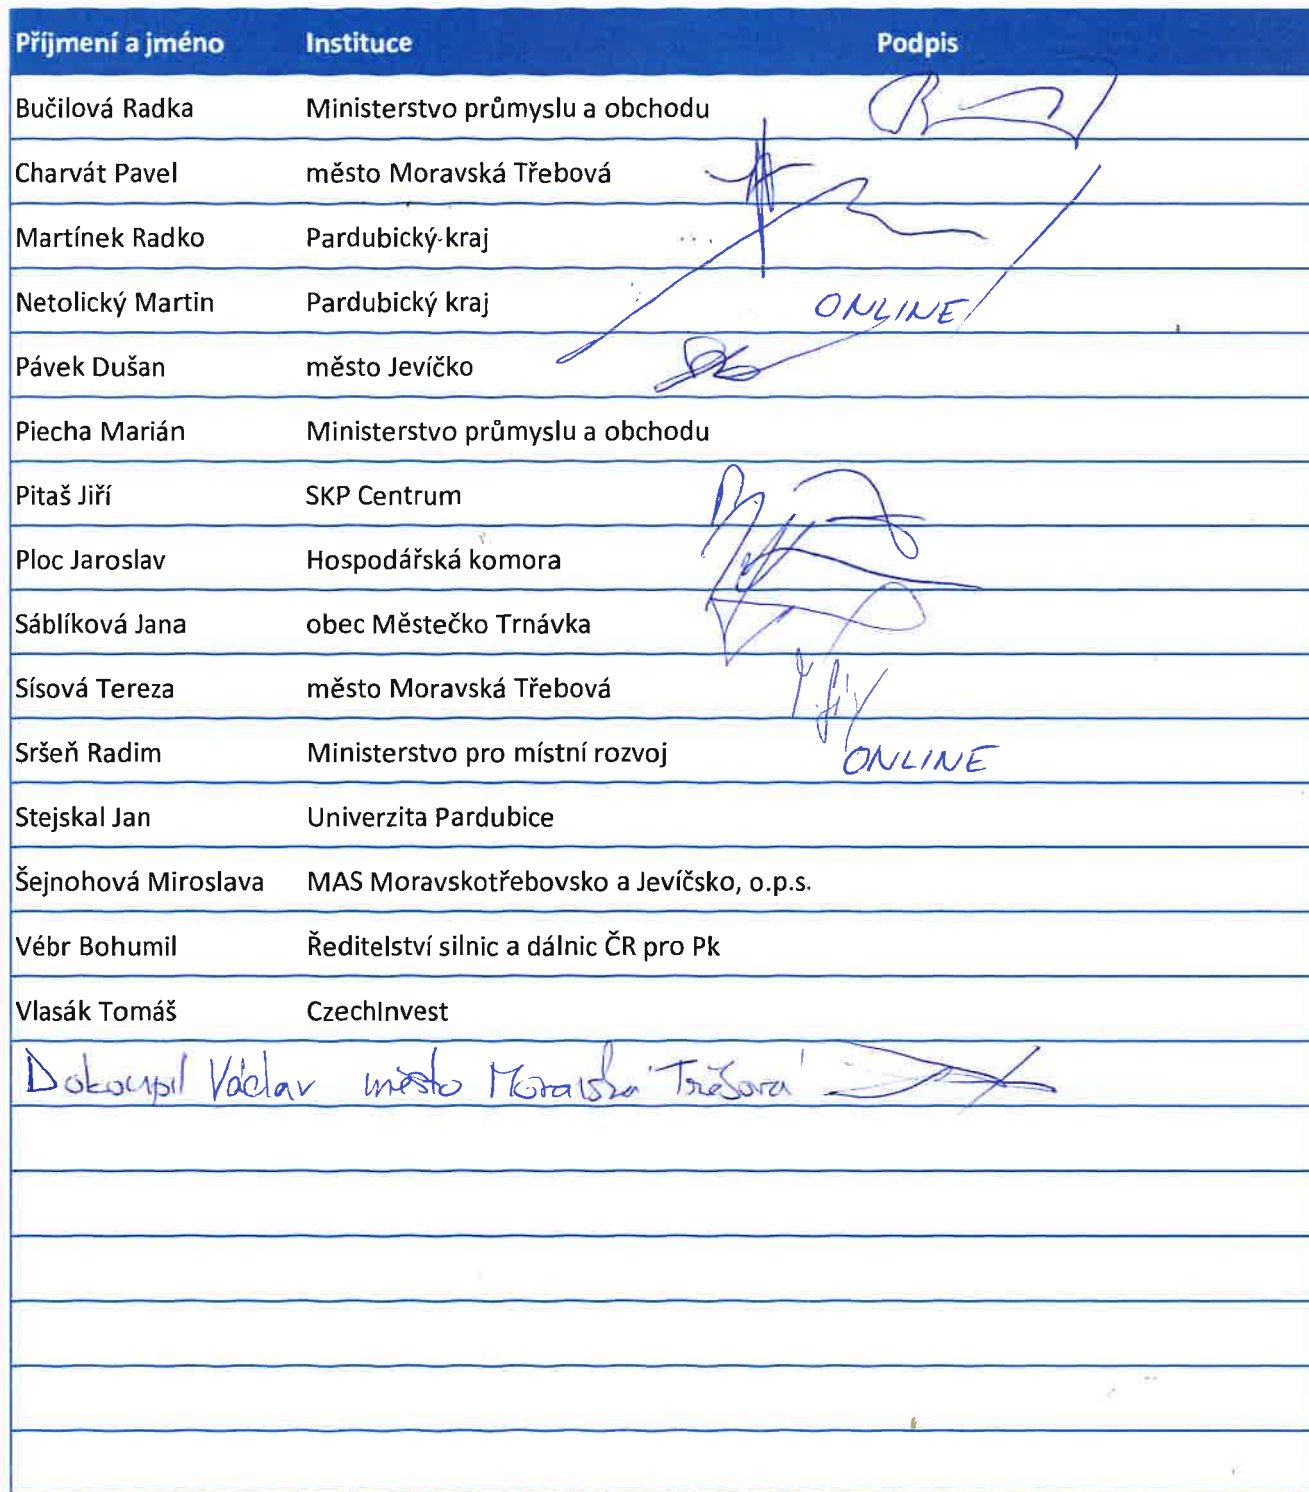 Příjmení a jméno Instituce Podpis
Bučilová Radka Ministerstvo průmyslu a obchodu
Charvát Pavel město Moravská Třebová
Martínek Radko Pardubický kraj
Netolický Martin Pardubický kraj ONLINE
Pávek Dušan město Jevíčko
Piecha Marián Ministerstvo průmyslu a obchodu
Pitaš Jiří SKP Centrum
Ploc Jaroslav Hospodářská komora
Sáblíková Jana obec Městečko Trnávka
Sísová Tereza město Moravská Třebová
Sršeň Radim Ministerstvo pro místní rozvoj ONLINE
Stejskal Jan Univerzita Pardubice
Šejnohová Miroslava MAS Moravskotřebovsko a Jevíčsko, o.p.s.
Vébr Bohumil Ředitelství silnic a dálnic ČR pro Pk
Vlasák Tomáš CzechInvest
Dokoupil Václav město Moravská Třebová